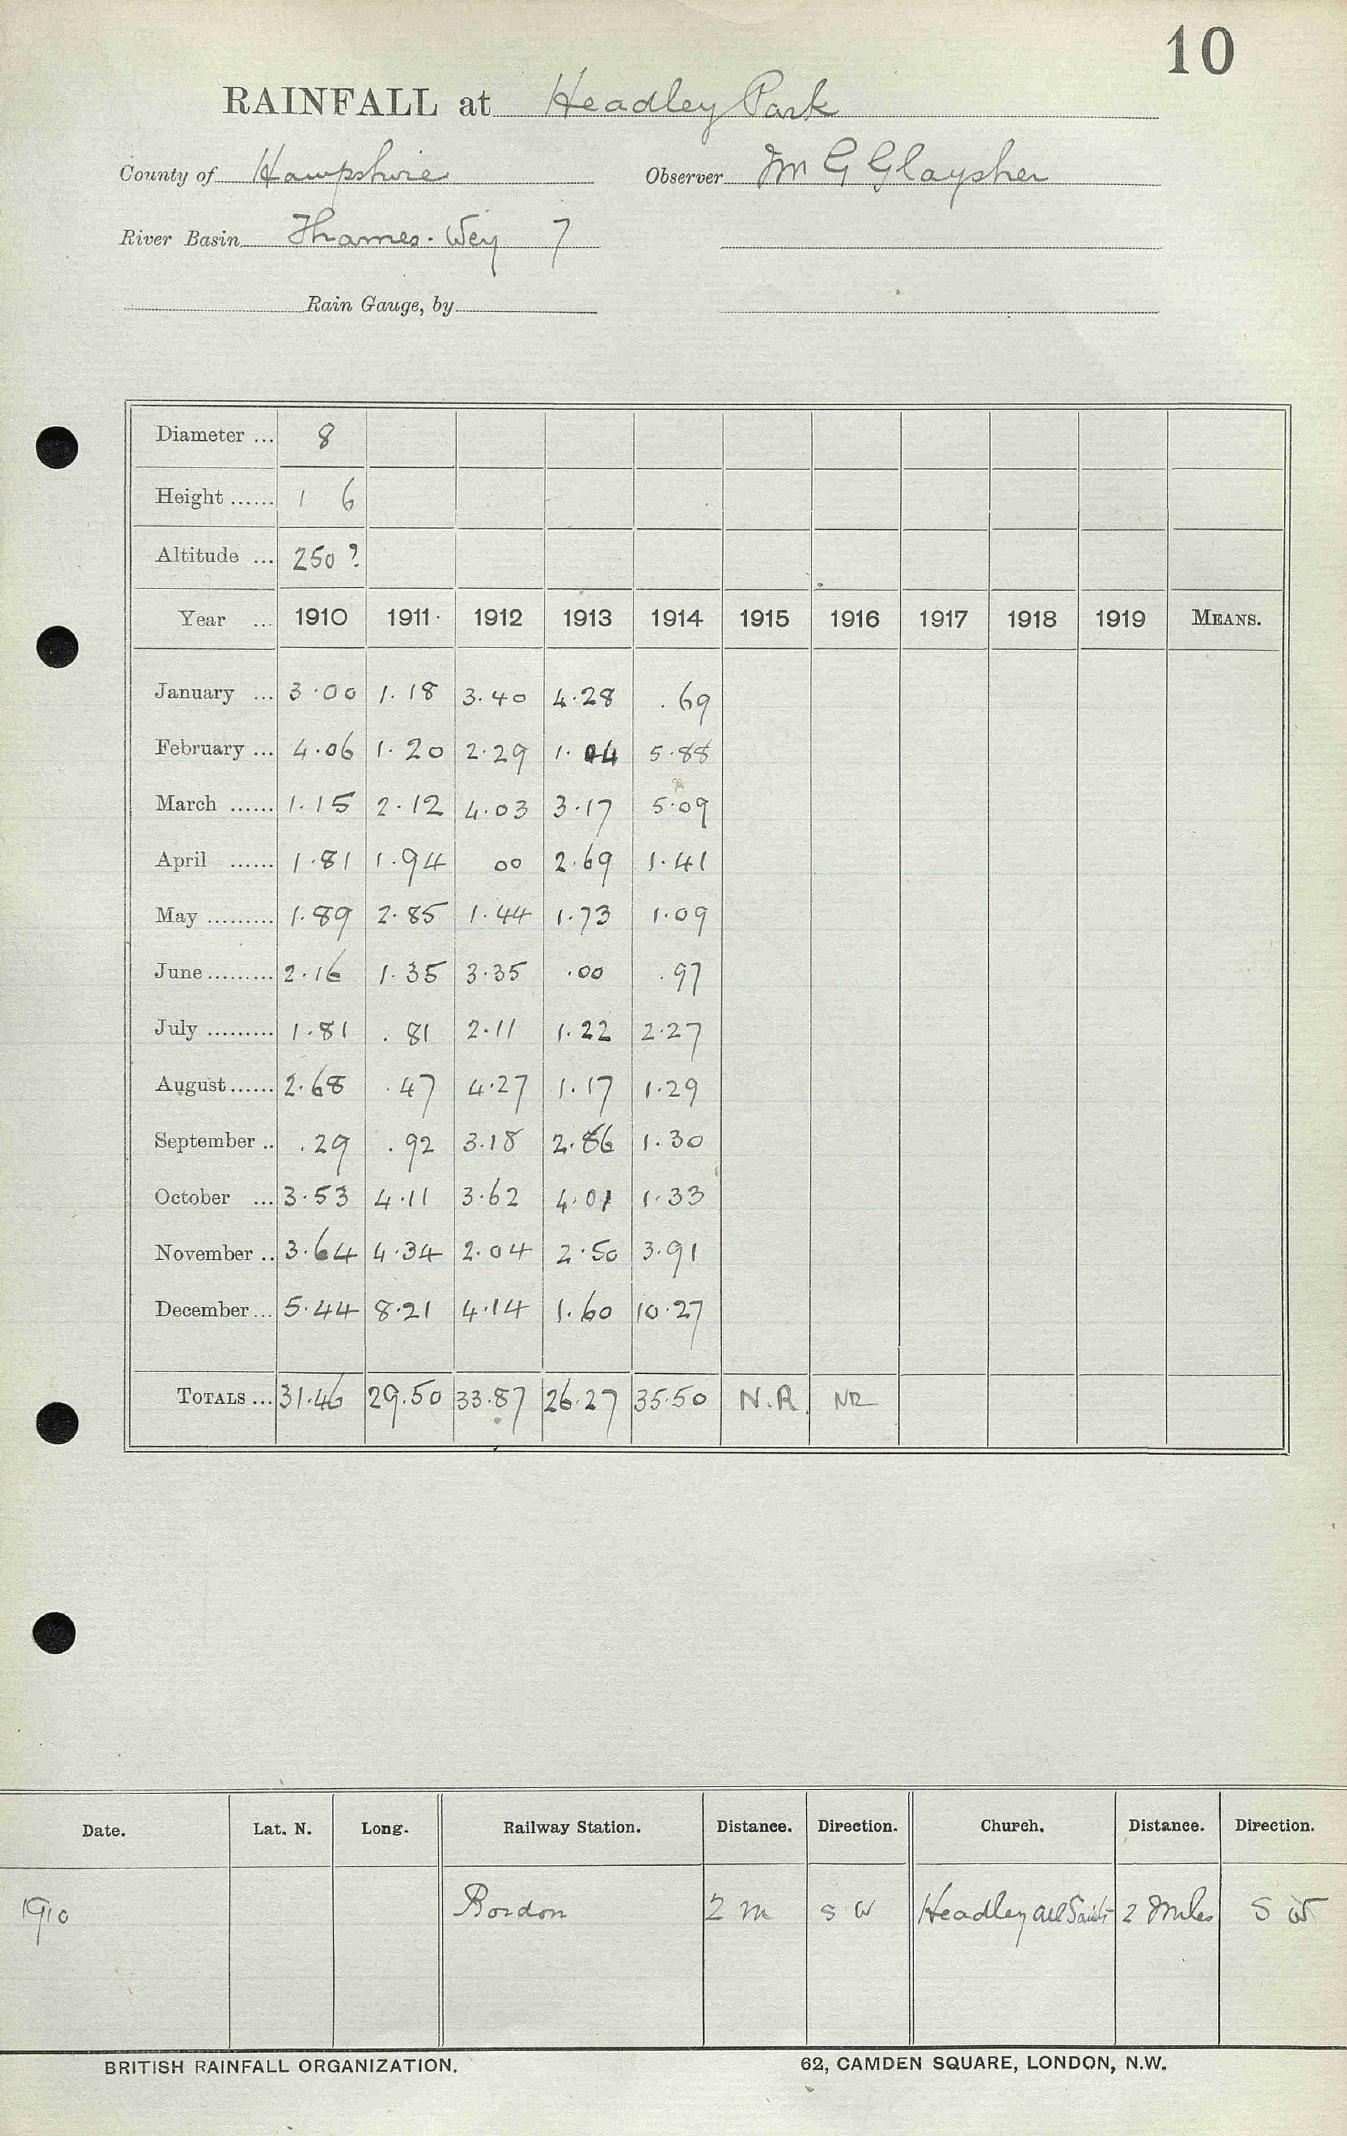 10
RAINFALL at Headley Park
County of Hampshire Observer Mr G Glaysher
River Basin Thames. Wey 7
Rain Gauge, by
Diameter ... 8
Height ...... 1 6
Altitude ... 250 ?
Year ... 1910 1911 1912 1913 1914 1915 1916 1917 1918 1919 MEANS.
January ... 3.00 1.18 3.40 4.28 .69
February ... 4.06 1.20 2.29 1.04 5.88
March ...... 1.15 2.12 4.03 3.17 5.09
April ...... 1.81 1.94 00 2.69 1.41
May ......... 1.89 2.85 1.44 1.73 1.09
June ......... 2.16 1.35 3.35 .00 .97
July ......... 1.81 .81 2.11 1.22 2.27
August ...... 2.68 .47 4.27 1.17 1.29
September .. .29 .92 3.18 2.86 1.30
October ... 3.53 4.11 3.62 4.01 1.33
November .. 3.64 4.34 2.04 2.50 3.91
December ... 5.44 8.21 4.14 1.60 10.27
TOTALS ... 31.46 29.50 33.87 26.27 35.50 N.R. NR
Date. Lat. N. Long. Railway Station. Distance. Direction. Church. Distance. Direction.
1910 Bordon 2 m S W Headley All Saints 2 Miles S W
BRITISH RAINFALL ORGANIZATION. 62, CAMDEN SQUARE, LONDON, N.W.